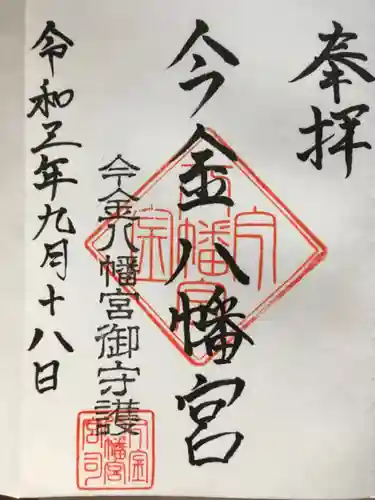 奉拝
今金八幡宮
今金八幡宮
今金八幡宮御守護
今金八幡宮宮司
令和五年九月十八日